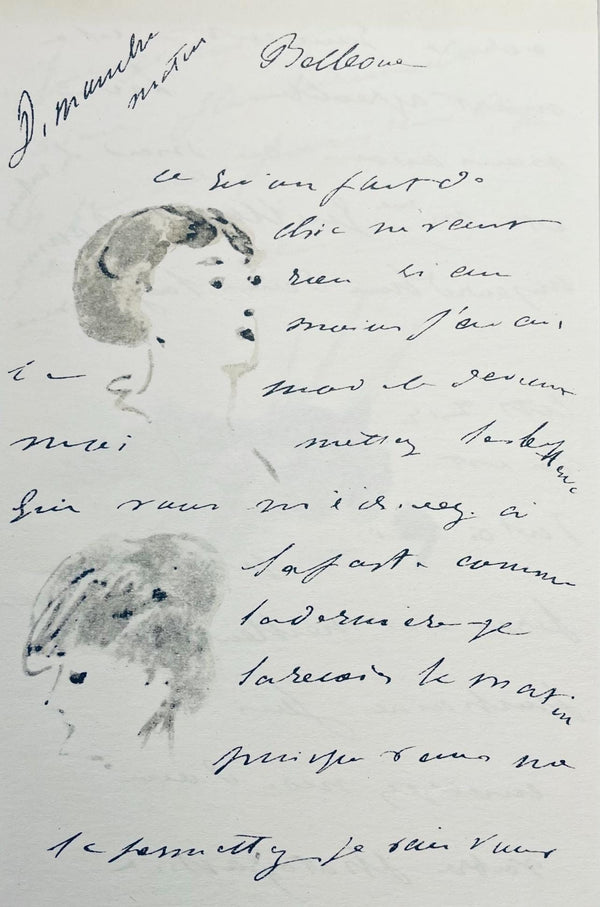 Dimanche
matin
Bellevue
ce qu'on fait de
chic ne vaut
rien si au
moins j'avai
le modele devant
moi mettez la lettre
que vous m'ecrivez a
la poste comme
la derniere je
la recois le matin
puisque vous me
le permettez je vais vous